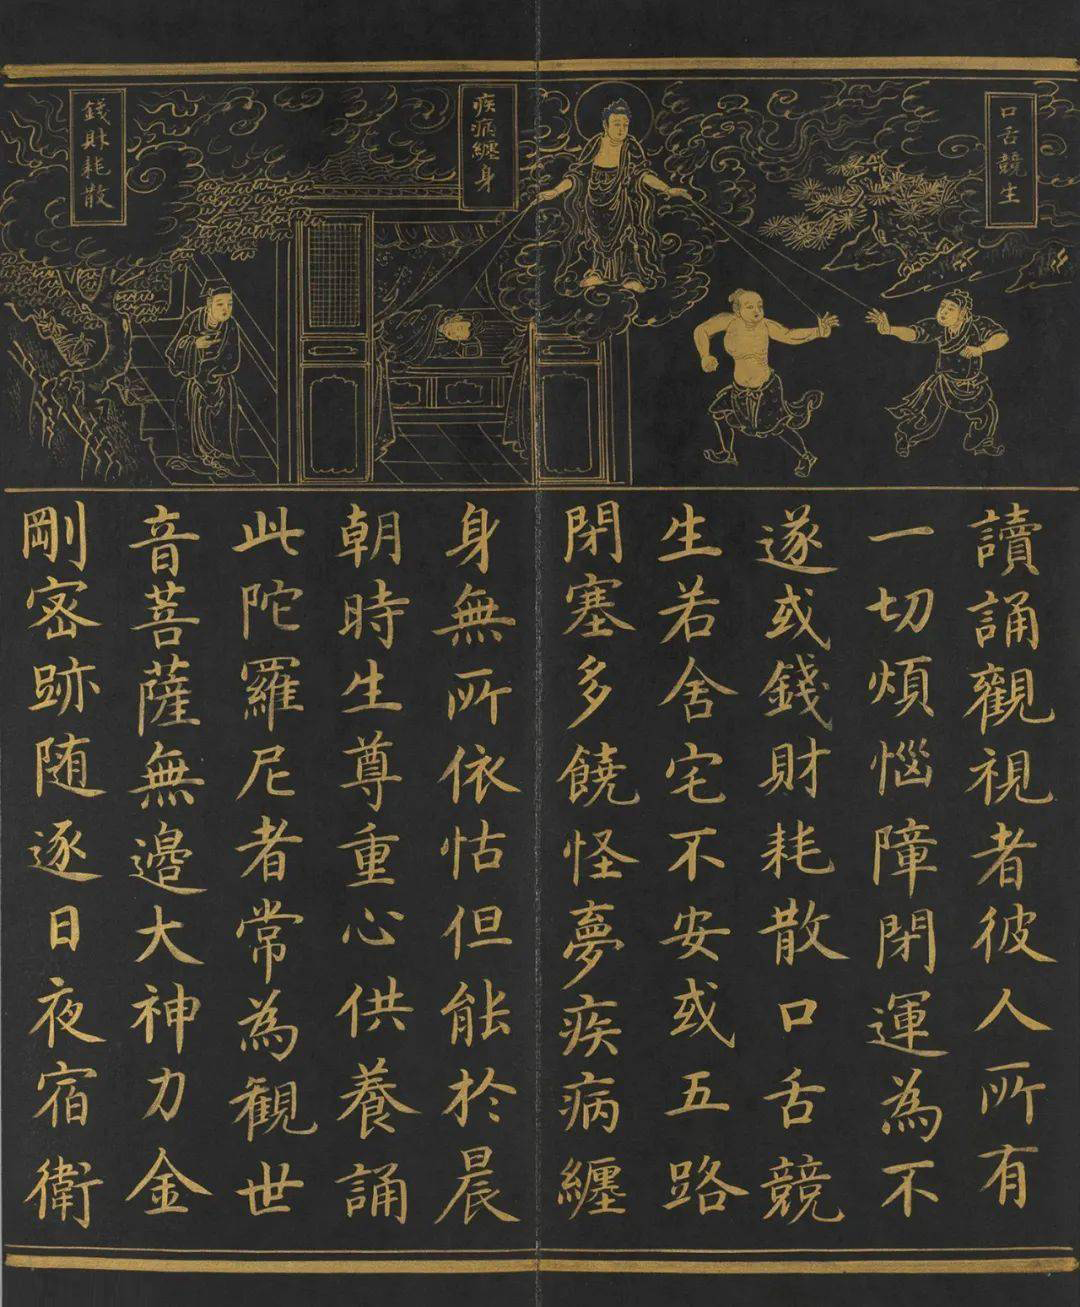 口舌競生
疾病纏身
錢財耗散
讀誦觀視者彼人所有
一切煩惱障閉運為不
遂或錢財耗散口舌競
生若舍宅不安或五路
閉塞多饒怪夢疾病纏
身無所依怙但能於晨
朝時生尊重心供養誦
此陀羅尼者常為觀世
音菩薩無邊大神力金
剛密跡随逐日夜宿衛